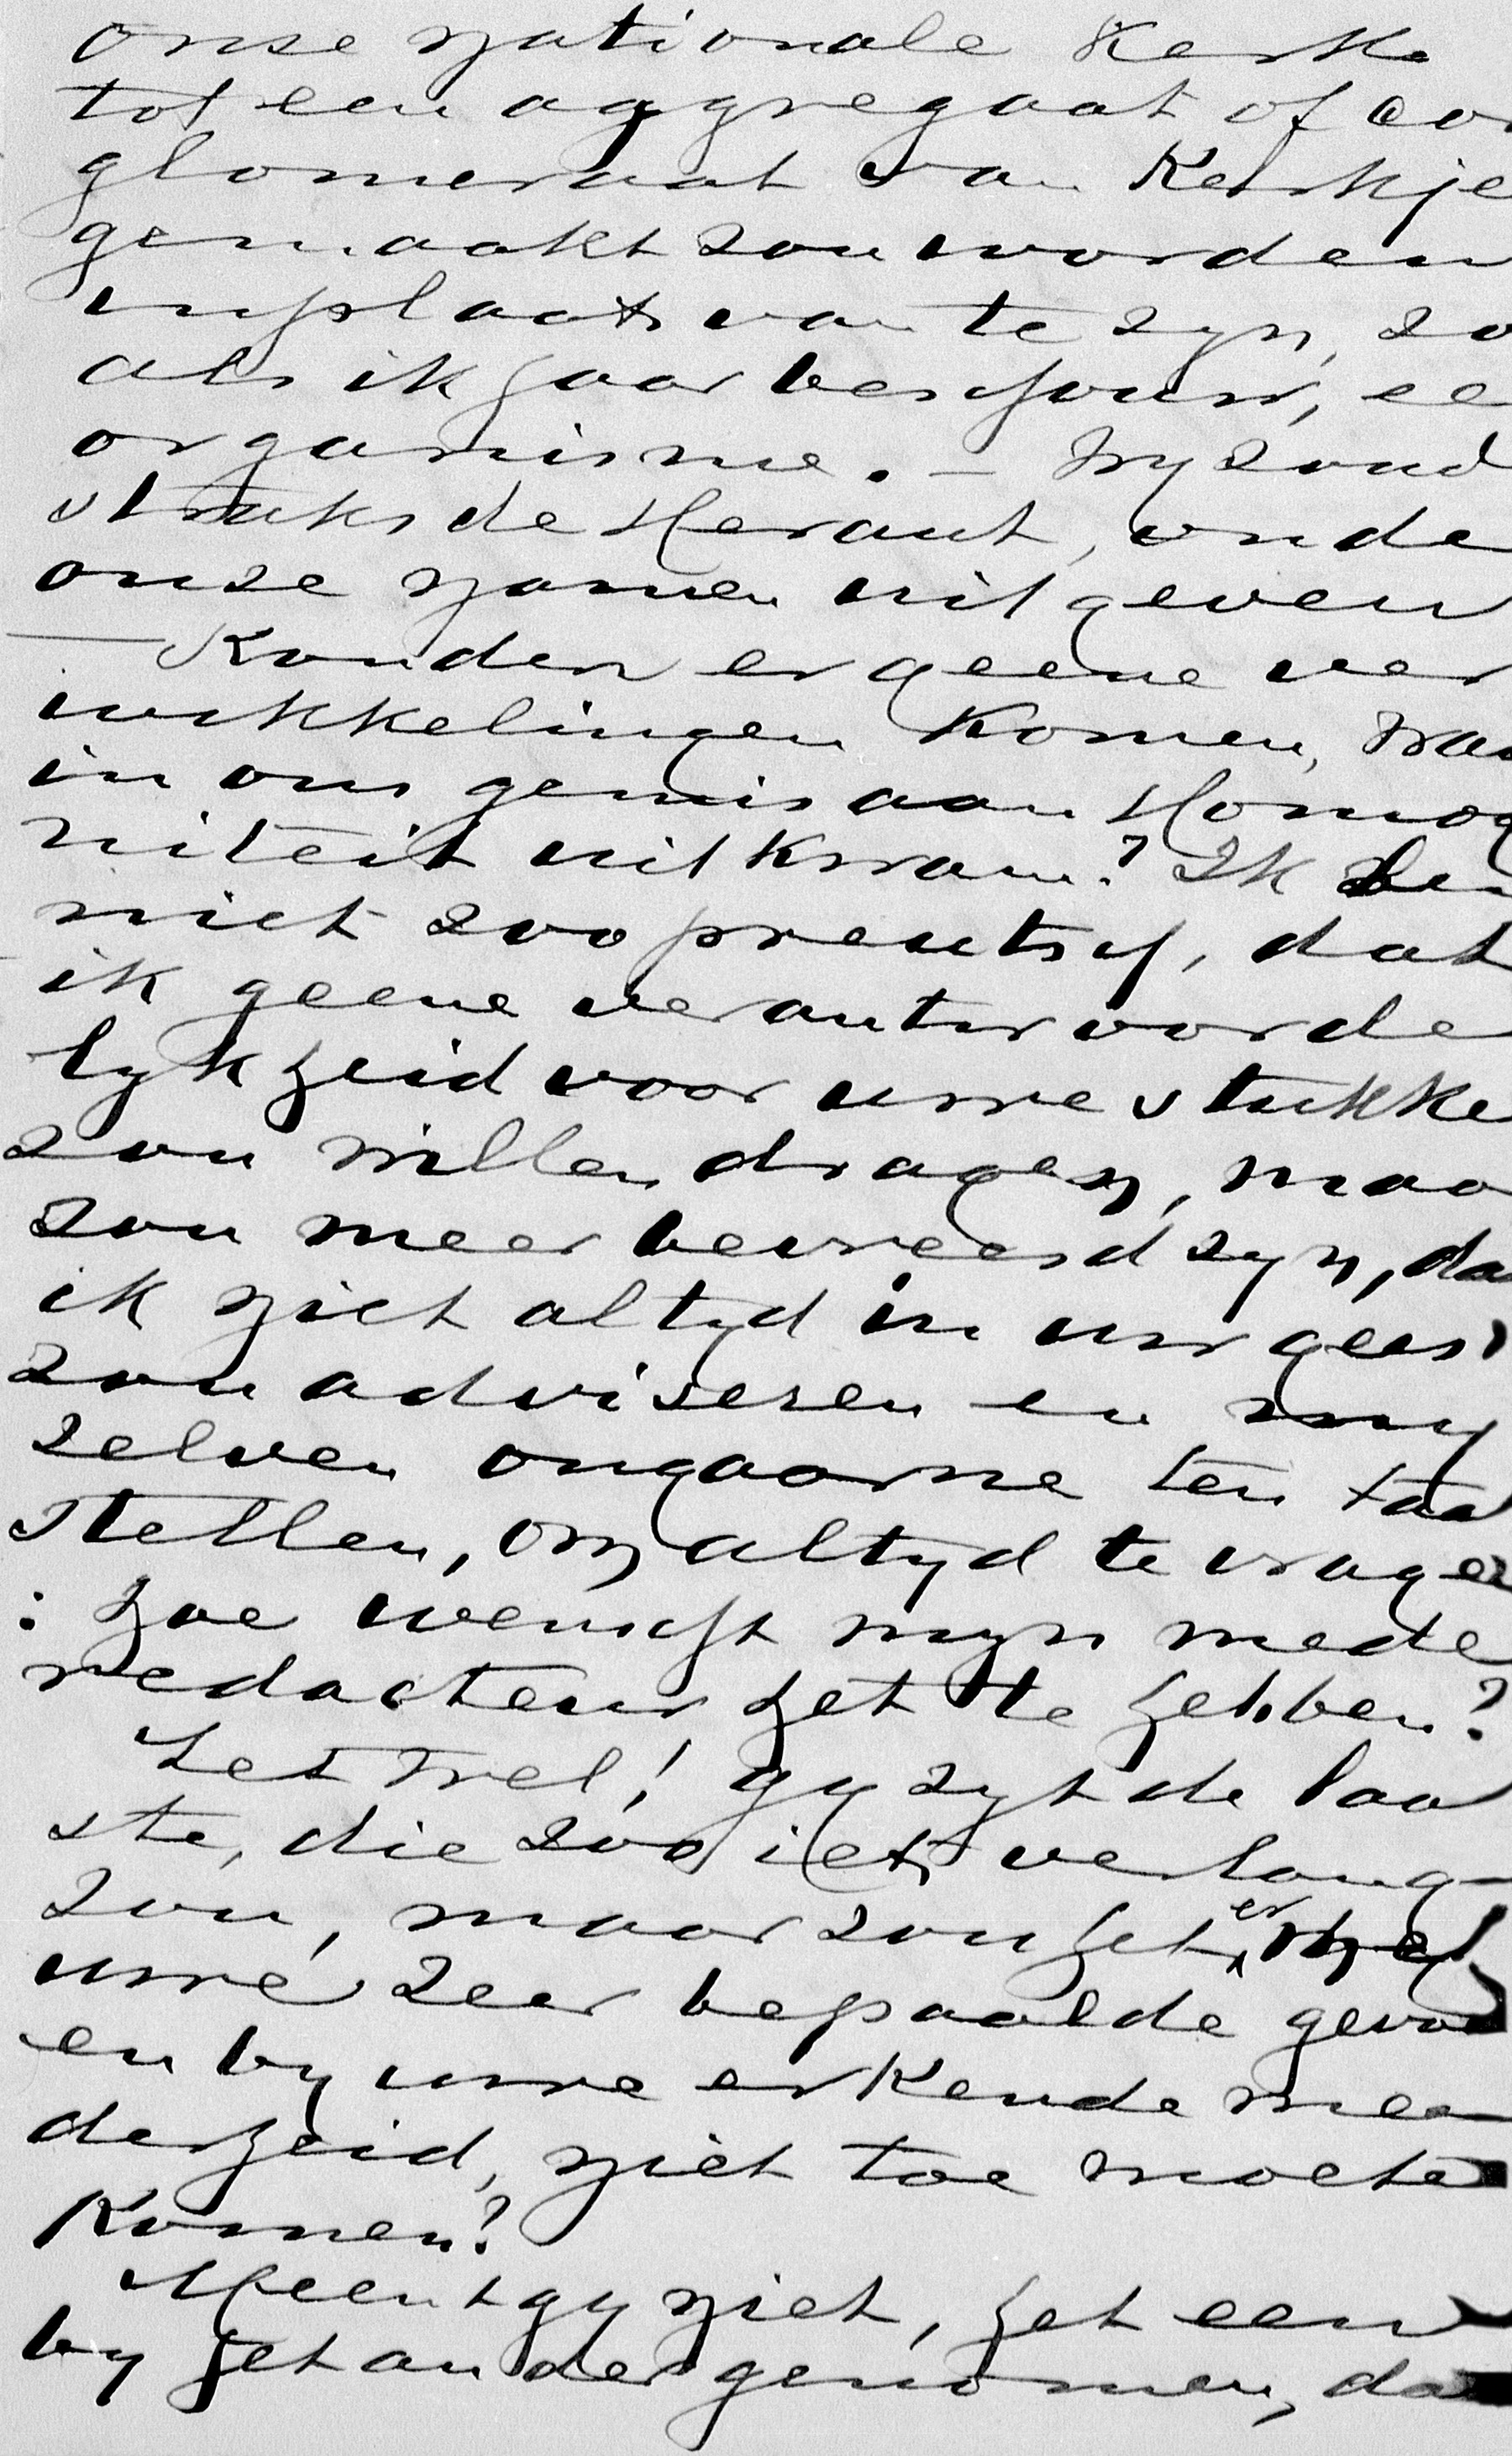 onze nationale Kerk
tot een aggregaat of con
glomeraat van Kerkje
gemaakt zou worden
inplaats van te zyn, zo
als ik haar beschouw, ee
organisme. — Wy zoud
straks de Heraut, onde
onze namen uitgeven
— Konden er geene ver
wikkelingen komen, waa
in ons gemis aan Homog
niteit uitkwam? Ik ben
niet zoo preutsch, dat
ik geene verantwoorde
lykheid voor uwe stukke
zou willen dragen, maa
zou meer bevreesd zyn, da
ik niet altyd in uw gees
zou adviseren en my
zelven ongaarne ten taa
stellen, om altyd te vrage
: hoe wenscht myn mede
redacteur het te hebben?
Let wel! gy zyt de laa
ste, die zoo iets verlang
zou, maar zou het er, by
uwe zeer bepaalde gevoe
en by uwe erkende mee
derheid, niet toe moete
komen?
Meent gy niet, het een
by het ander genomen, da